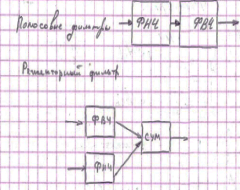 Полосовые фильтры ФНЧ ФВЧ
Режекторный фильтр
ФВЧ
СУМ
ФНЧ